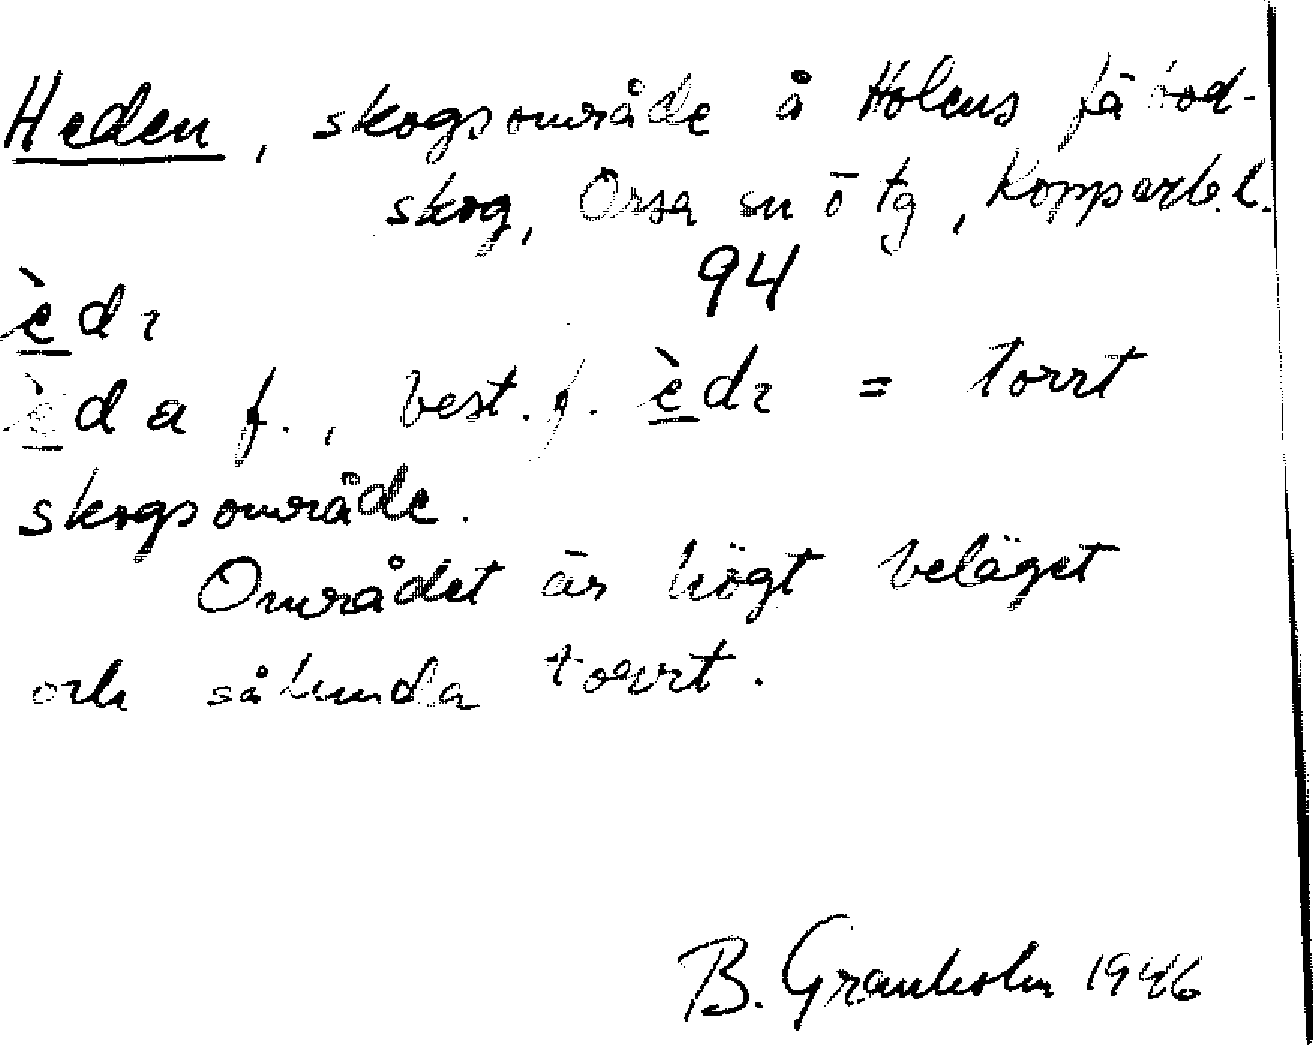 Heden, skogsområde å Holens fäbod-
skog, Orsa sn o tg, Kopparb. l.
94
èdɿ
èda f., best. f. èdɿ = torrt
skogsområde.
Området är högt beläget
och sålunda torrt.
B. Granholm 1946